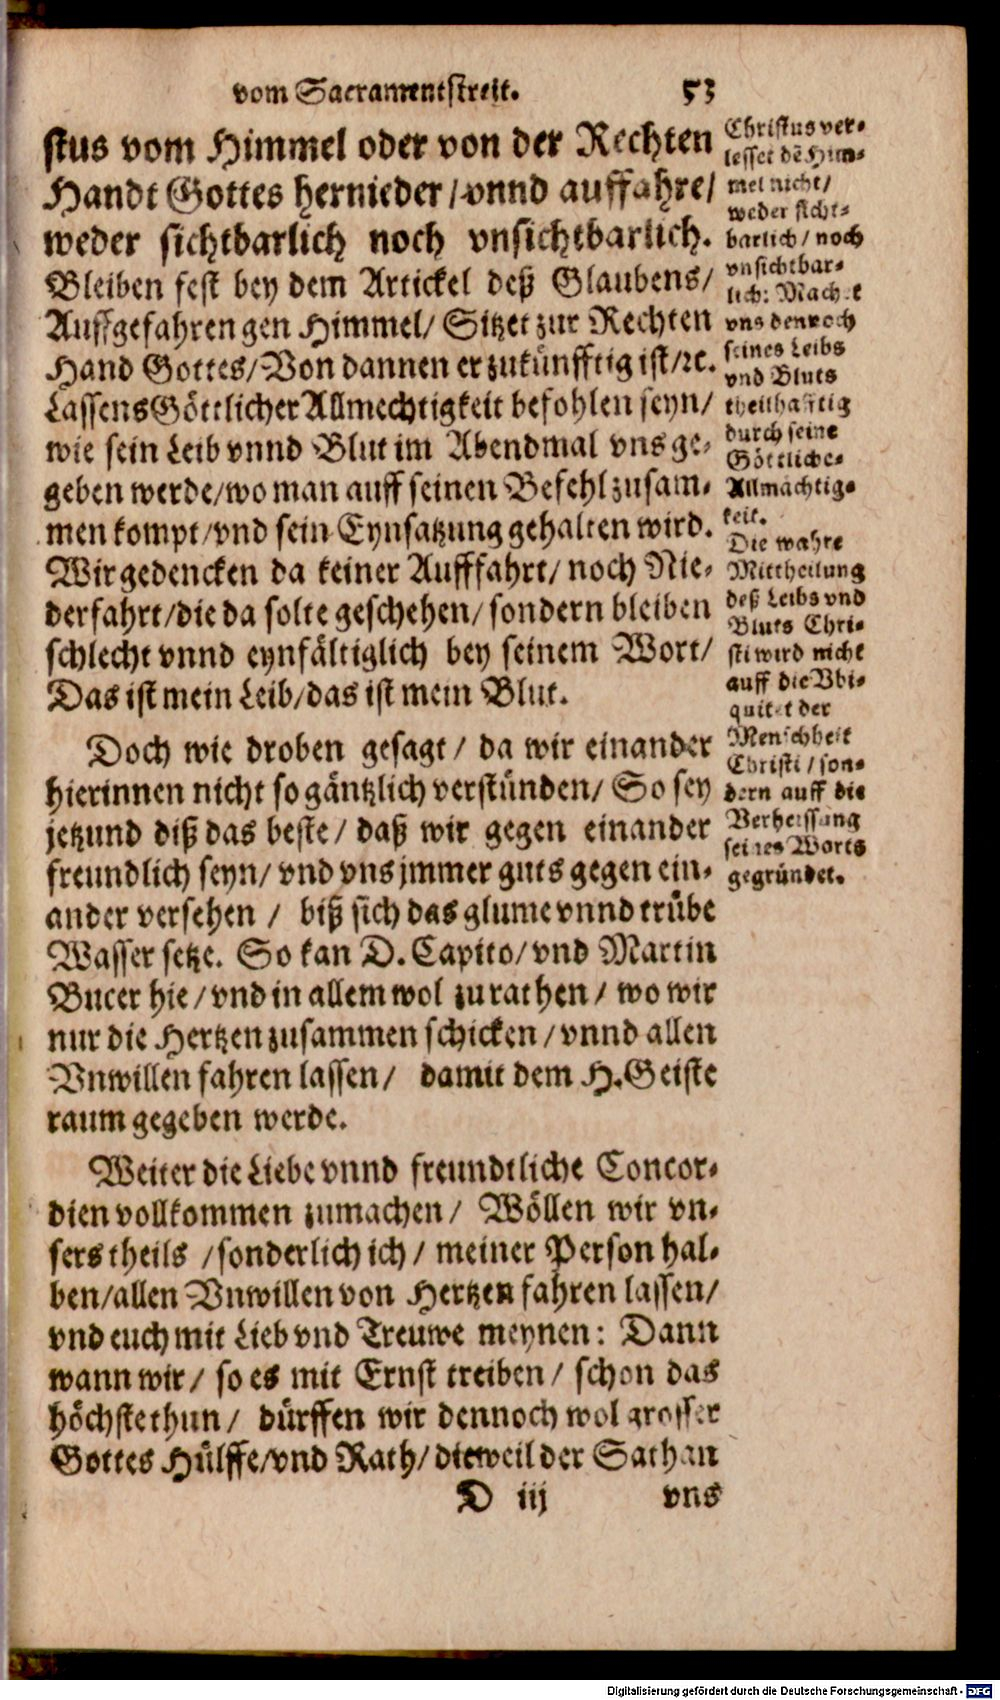 vom Sacramentstreit. 53
stus vom Himmel oder von der Rechten
Handt Gottes hernieder / vnnd auffahre /
weder sichtbarlich noch vnsichtbarlich.
Bleiben fest bey dem Artickel deß Glaubens /
Auffgefahren gen Himmel / Sitzet zur Rechten
Hand Gottes / Von dannen er zukünfftig ist / ꝛc.
Lassens Göttlicher Allmechtigkeit befohlen seyn /
wie sein Leib vnnd Blut im Abendmal vns ge-
geben werde / wo man auff seinen Befehl zusam-
men kompt / vnd sein Eynsatzung gehalten wird.
Wir gedencken da keiner Aufffahrt / noch Nie-
derfahrt / die da solte geschehen / sondern bleiben
schlecht vnnd eynfältiglich bey seinem Wort /
Das ist mein Leib / das ist mein Blut.
Doch wie droben gesagt / da wir einander
hierinnen nicht so gäntzlich verstünden / So sey
jetzund diß das beste / daß wir gegen einander
freundlich seyn / vnd vns jmmer guts gegen ein-
ander versehen / biß sich das glume vnnd trübe
Wasser setze. So kan D. Capito / vnd Martin
Bucer hie / vnd in allem wol zu rathen / wo wir
nur die Hertzen zusammen schicken / vnnd allen
Vnwillen fahren lassen / damit dem H. Geiste
raum gegeben werde.
Weiter die Liebe vnnd freundtliche Concor-
dien vollkommen zumachen / Wöllen wir vn-
sers theils / sonderlich ich / meiner Person hal-
ben / allen Vnwillen von Hertzen fahren lassen /
vnd euch mit Lieb vnd Treuwe meynen: Dann
wann wir / so es mit Ernst treiben / schon das
höchste thun / dürffen wir dennoch wol grosser
Gottes Hülffe / vnd Rath / dieweil der Sathan
D iij vns
Christus ver-
lesset dē Him-
mel nicht /
weder sicht-
barlich / noch
vnsichtbar-
lich: Machet
vns dennoch
seines Leibs
vnd Bluts
theilhafftig
durch seine
Göttliche-
Allmächtig-
keit.
Die wahre
Mittheilung
deß Leibs vnd
Bluts Chri-
sti wird nicht
auff die Vbi-
quitet der
Menschheit
Christi / son-
dern auff die
Verheissung
seines Worts
gegründet.
Digitalisierung gefördert durch die Deutsche Forschungsgemeinschaft - DFG